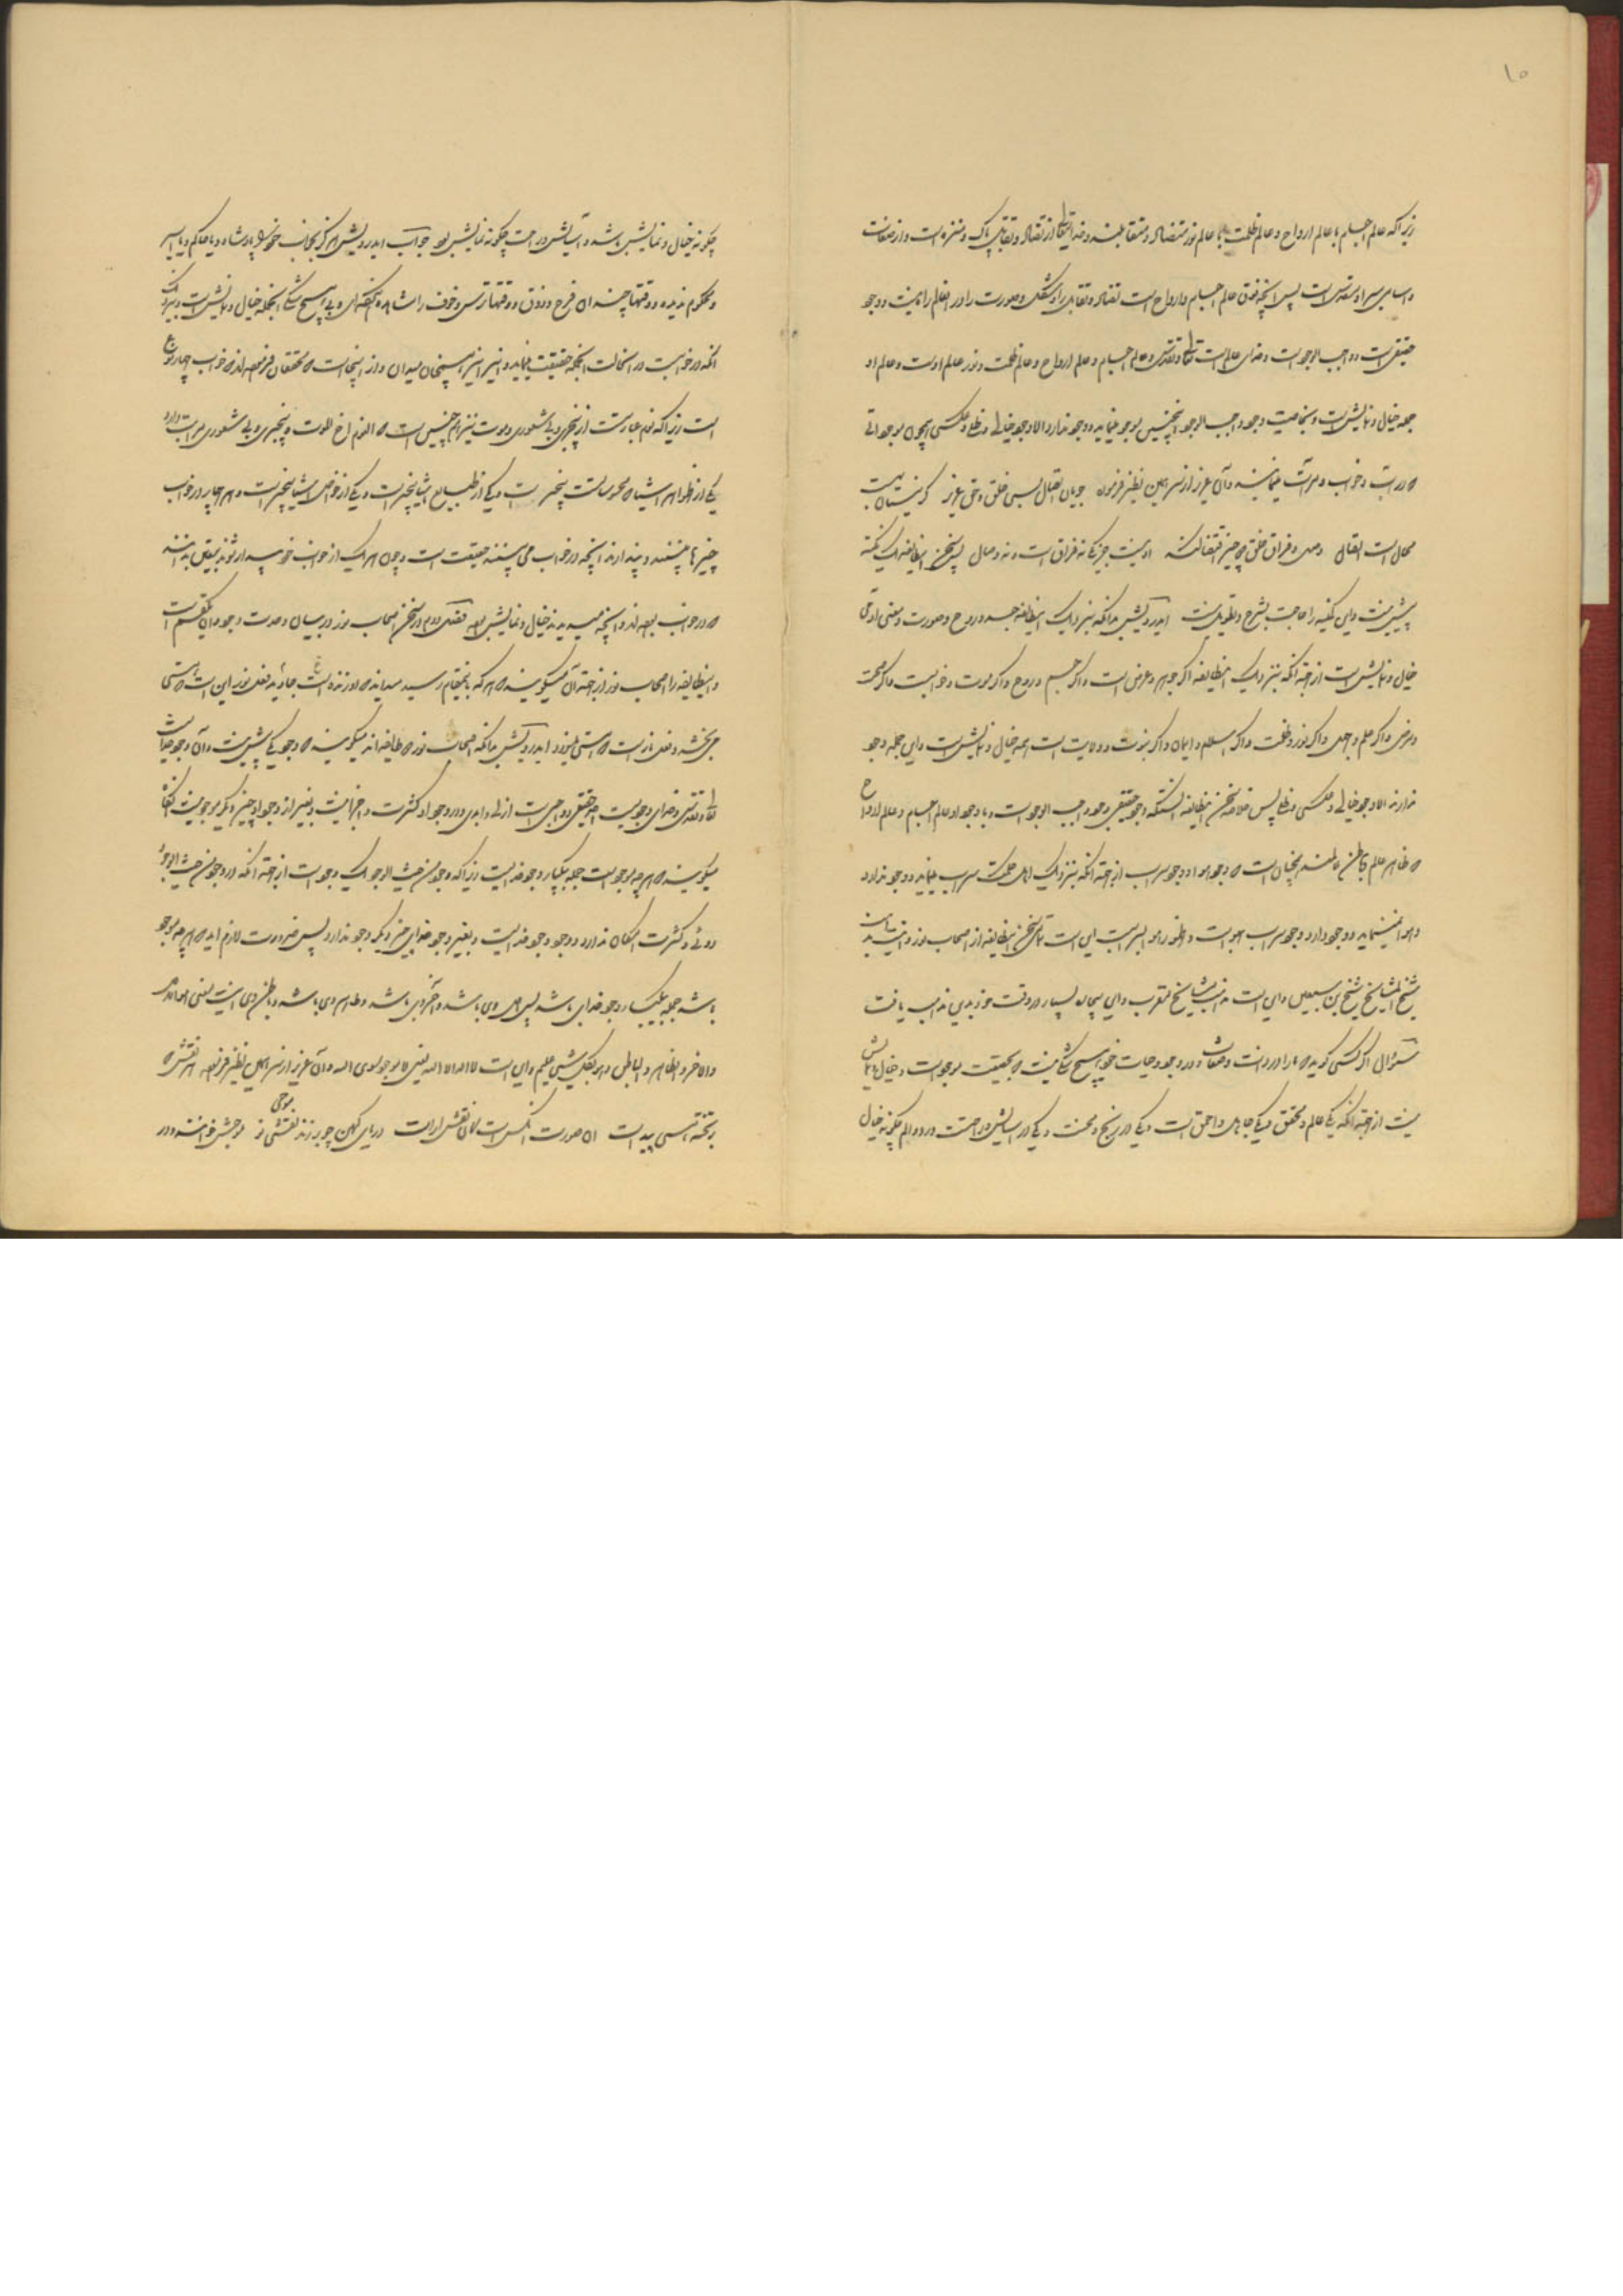 ۱۰
زیرا که عالم اجسام با عالم ارواح و عالم ظلمت با عالم نور متضاد و متقابلند و خدایتعالی از تضاد و تقابل پاک و منزه است و از صفات
است پس آنچه فوق عالم اجسام و ارواح است تضاد و تقابل را و شکل و صورت را در آن عالم راه نیست و وجود
حقیقی است و واجب الوجود است و خدای عالم است تعالی و تقدس و عالم اجسام و عالم ارواح و عالم ظلمت و نور عالم اوست و عالم او
جمله خیال و نمایش است و بخاصیت وجود واجب الوجود اینچنین موجود مینماید و وجود ندارد الا وجود خیالی و ظلی و عکسی همچون موجوداتی
که در آب و خواب و مرآت مینمایند و آن عزیز از سر همین نظر فرموده
محال است اتصال وصل و فراق خلق چه چیز او نیست چیزی که نه فراق است و نه وصال پس سخن اینطایفه یک نکته
بیش نیست و این نکته را حاجت بشرح و تطویل نیست ایدرویش بدانکه بنزدیک اینطایفه جسد و روح و صورت و معنی
خیال و نمایش است از جهة آنکه بنزدیک اینطایفه اگر جوهر و عرض است و اگر جسم و روح و اگر موت و خواب است و اگر صحت
و مرض و اگر علم و جهل و اگر نور و ظلمت و اگر اسلام و ایمان و اگر نبوت و ولایت است همه خیال و نمایش است و این جمله وجود
ندارند الا وجود خیالی و عکسی و ظلی پس خلاصه سخن اینطایفه آنستکه وجود حقیقی وجود واجب الوجود است و با وجود او عالم اجسام و عالم ارواح
که ظاهر عالم و باطن عالمند همچنان است که وجود هوا و وجود سراب از جهة آنکه بنزدیک اهل حکمت سراب مینماید و وجود ندارد
و هوا نمینماید و وجود دارد وجود سراب بهواست و ظهور هوا بسراب است این است تمامی سخن اینطایفه از اصحاب نور و اینست مذهب
شیخ المشایخ شیخ بن سبعین و این است مذهب مشایخ مغرب و این بیچاره بسیار در وقت خود بدین مذهب یافت
سؤال اگر کسی گوید که ما را در ذات و صفات و در وجود و حیات خود هیچ شکی نیست که بحقیقت موجود است و خیال و نمایش
نیست از جهة آنکه یکی عالم و محقق و یکی جاهل و احمق است و یکی در رنج و محنت و یکی در آسایش و راحت درد و الم چگونه خیال
چگونه خیال و نمایش باشد و آسایش و راحت چگونه نمایش بود جواب ایدرویش هرگز بخواب خود را پادشاه و یا حاکم و یا اسیر
و محکوم ندیده و وقتها چند از آن فرح و ذوق و وقتها ترس و خوف را مشاهده نکرده‌ای و بی هیچ شکی اینجمله خیال و نمایش است و بنزدیک
آنکه در خواب است در آن حالت اینجمله حقیقت مینماید و نیز همچنان میدان و از اینجاست که محققان فرموده‌اند که خواب چهار نوع
است زیرا که نوم عبارتست از بیخبری و بی شعوری و موت نیز هم چنین است که النوم اخ الموت و بیخبری و بی شعوری مراتب دارد
یکی از ظواهر اشیا که محسوسات بیخبر است و یکی از طبایع اشیا بیخبر است و یکی از خواص اشیا بیخبر است و هر چهار در خواب
چیزها میبینند و پندارند آنچه در خواب می بینند حقیقت است و چون هر یک از خواب خود بیدار شوند بیقین بدانند
که در خواب بوده‌اند و آنچه میدیدند خیال و نمایش بود فصل دوم در سخن اصحاب نور در بیان وحدت وجود بدان یکقسم است
و اینطایفه را اصحاب نور از جهة آن میگویند که هر که باینمقام رسید میداند که نور زنده است جاوید فعل نور این است که هستی
می بخشد و فعل نار است که هستی میبرد ایدرویش بدانکه اصحاب نور که طایفه اند میگویند که وجود یکی بیش نیست و آن وجود خداست
تعالی و تقدس و خدای وجودیست احد حقیقی و واجب است ازلی و ابدی و در وجود او کثرت و اجزا نیست و بغیر از وجود او چیز دیگر موجود نیست
میگویند که هر چه موجود است جمله بیکبار وجود خدایست زیرا که وجود من حیث الوجود یک وجود است از جهة آنکه در وجود من حیث الوجود
دوئی و کثرت امکان ندارد و وجود وجود خدایست و بغیر وجود خدای چیز دیگر وجود ندارد پس ضرورت لازم آید که هر چه موجود
باشد جمله بیکبار وجود خدای باشد پس اول وی باشد و آخر وی باشد و ظاهر وی باشد و باطن وی اینست یعنی هو الاول
و الاخر و الظاهر و الباطن و هو بکل شیئ علیم و این است لا اله الا الله یعنی لا موجود سوی الله و آن عزیز از سر همین نظر فرموده هر نقش که
بر تخته هستی پیداست آن صورت آنکس است کان نقش آراست دریای کهن چو بر زند موجی نو موجش خوانند و در